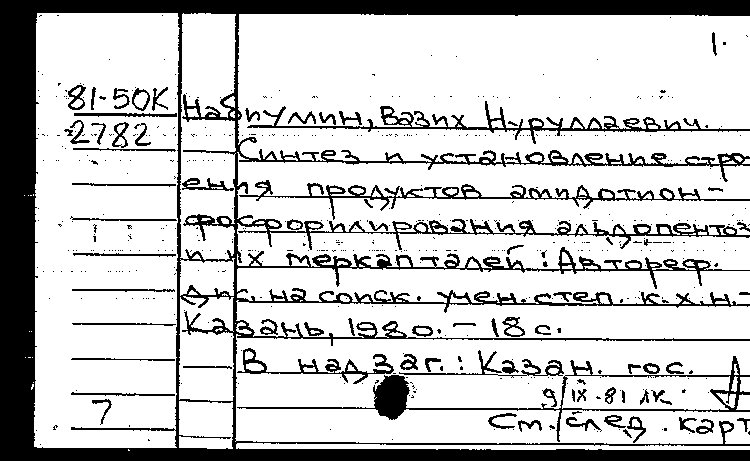 1.
81-50К
2782
Набиумин, Вазих Нуруллаевич.
Синтез и установление стро
ения продуктов амидотион-
фосфорилирования альдопентоз
и их меркапталей : Автореф.
дис. на соиск. учен. степ. к.х.н.-
Казань, 1980. - 18 с.
В надзаг. : Казан. гос.
9/IX-81 ЛК
7
См. след. карт